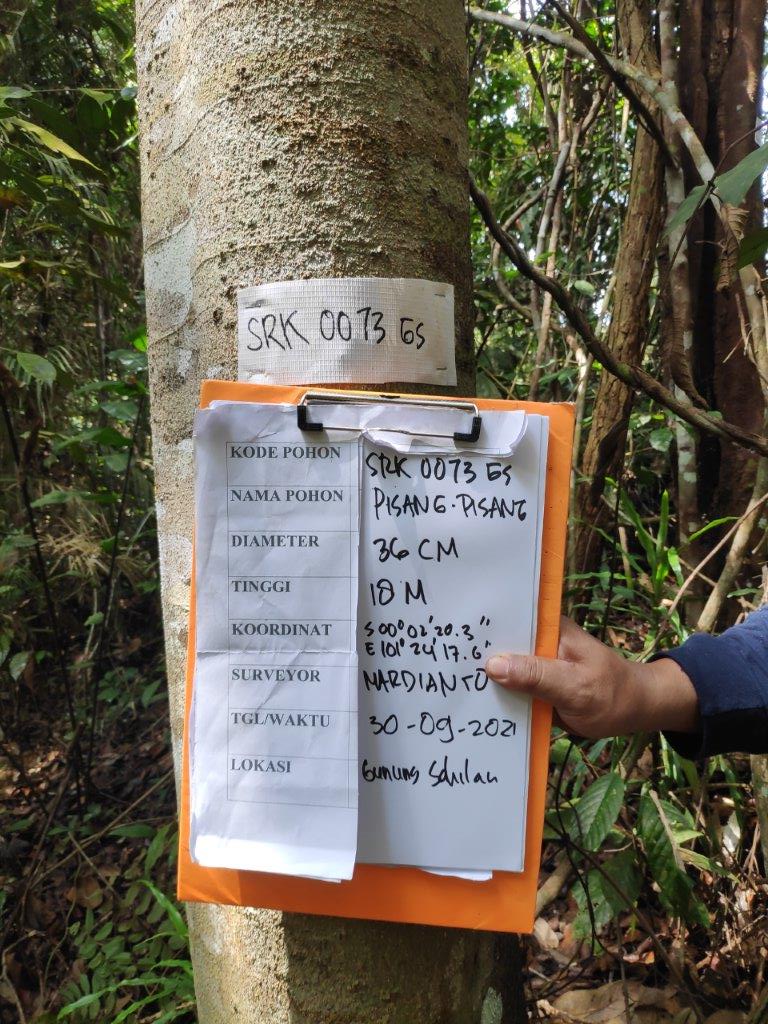 SRK 0073 GS
KODE POHON SRK 0073 GS
NAMA POHON PISANG-PISANG
DIAMETER 36 CM
TINGGI 18 M
KOORDINAT S 00°02'20.3"
E 101°24'17.6"
SURVEYOR MARDIANTO
TGL/WAKTU 30-09-2021
LOKASI Gunung Sahilan